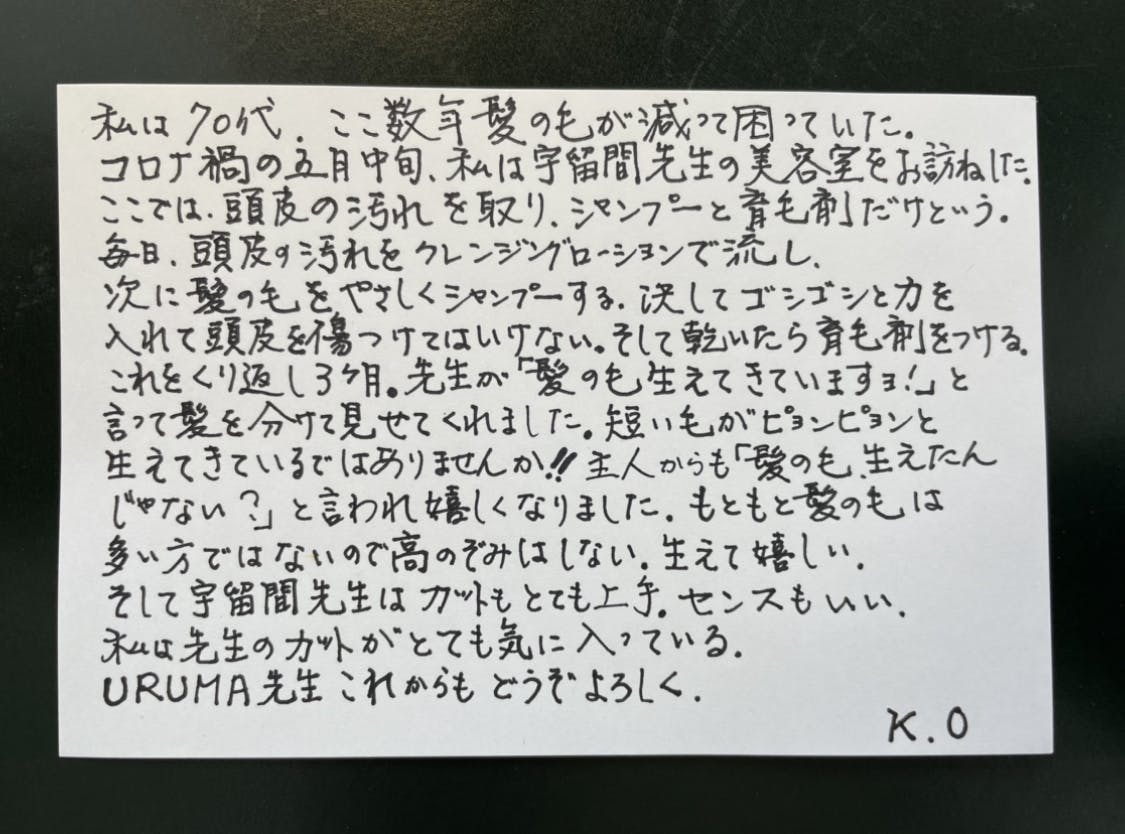 私は70代、ここ数年髪の毛が減って困っていた。
コロナ禍の五月中旬、私は宇留間先生の美容室をお訪ねした。
ここでは、頭皮の汚れを取り、シャンプーと育毛剤だけという。
毎日、頭皮の汚れをクレンジングローションで流し、
次に髪の毛をやさしくシャンプーする。決してゴシゴシと力を
入れて頭皮を傷つけてはいけない。そして乾いたら育毛剤をつける。
これをくり返し3ヶ月。先生が「髪の毛生えてきていますヨ!」と
言って髪を分けて見せてくれました。短い毛がピョンピョンと
生えてきているではありませんか!!主人からも「髪の毛、生えたん
じゃない?」と言われ嬉しくなりました。もともと髪の毛は
多い方ではないので高のぞみはしない。生えて嬉しい。
そして宇留間先生はカットもとても上手。センスもいい。
私は先生のカットがとても気に入っている。
URUMA先生これからもどうぞよろしく。
K.O